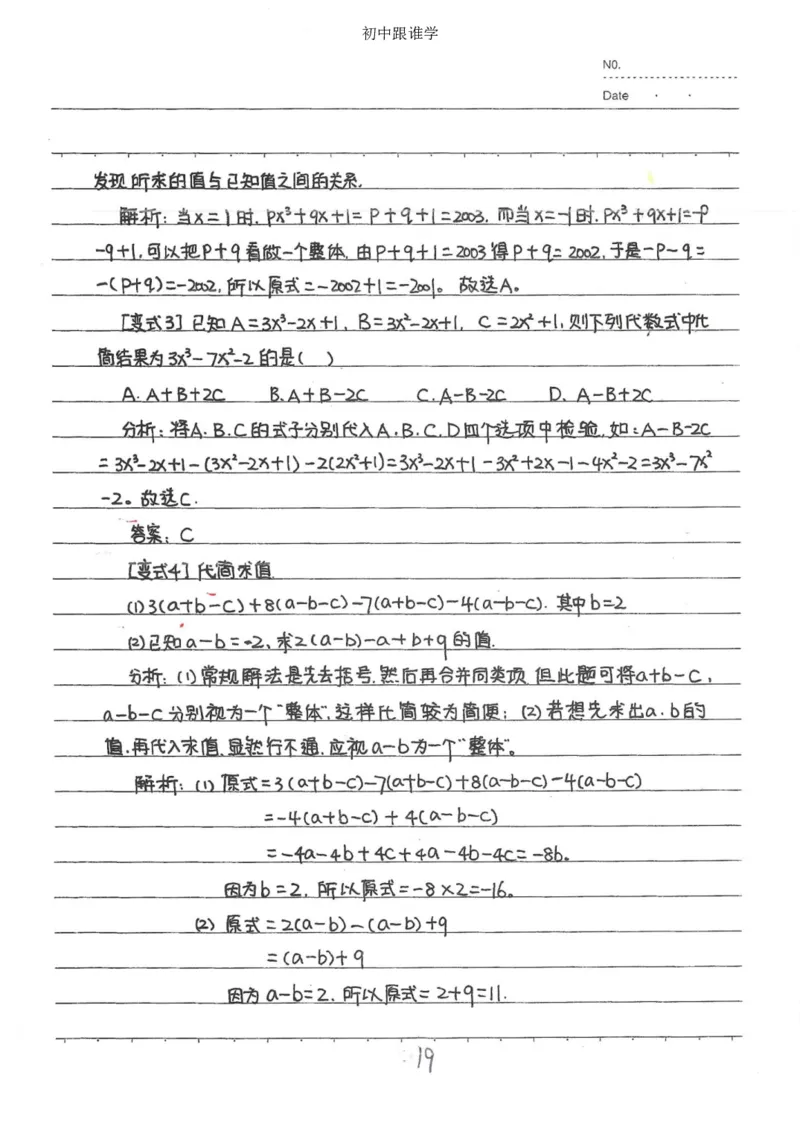 初中跟谁学
NO.
Date · ·
发现所求的值与已知值之间的关系.
解析:当x=1时.px³+qx+1=p+q+1=2003.而当x=-1时.px³+qx+1=-p
-q+1,可以把p+q看做一个整体.由p+q+1=2003得p+q=2002,于是-p-q=
-(p+q)=-2002,所以原式=-2002+1=-2001。故选A。
[变式3]已知A=3x³-2x+1, B=3x²-2x+1, C=2x²+1,则下列代数式中化
简结果为3x³-7x²-2的是( )
A. A+B+2C B. A+B-2C C. A-B-2C D. A-B+2C
分析:将A.B.C的式子分别代入A.B.C.D四个选项中检验,如:A-B-2C
=3x³-2x+1-(3x²-2x+1)-2(2x²+1)=3x³-2x+1-3x²+2x-1-4x²-2=3x³-7x²
-2。故选C.
答案:C
[变式4]代简求值
(1)3(a+b-c)+8(a-b-c)-7(a+b-c)-4(a-b-c).其中b=2
(2)已知a-b=-2,求2(a-b)-a+b+9的值.
分析:(1)常规解法是先去括号.然后再合并同类项.但此题可将a+b-c,
a-b-c分别视为一个"整体".这样代简较为简便;(2)若想先求出a.b的
值.再代入求值.显然行不通.应视a-b为一个"整体"。
解析:(1)原式=3(a+b-c)-7(a+b-c)+8(a-b-c)-4(a-b-c)
=-4(a+b-c)+4(a-b-c)
=-4a-4b+4c+4a-4b-4c=-8b。
因为b=2,所以原式=-8×2=-16。
(2)原式=2(a-b)-(a-b)+9
=(a-b)+9
因为a-b=2.所以原式=2+9=11.
19